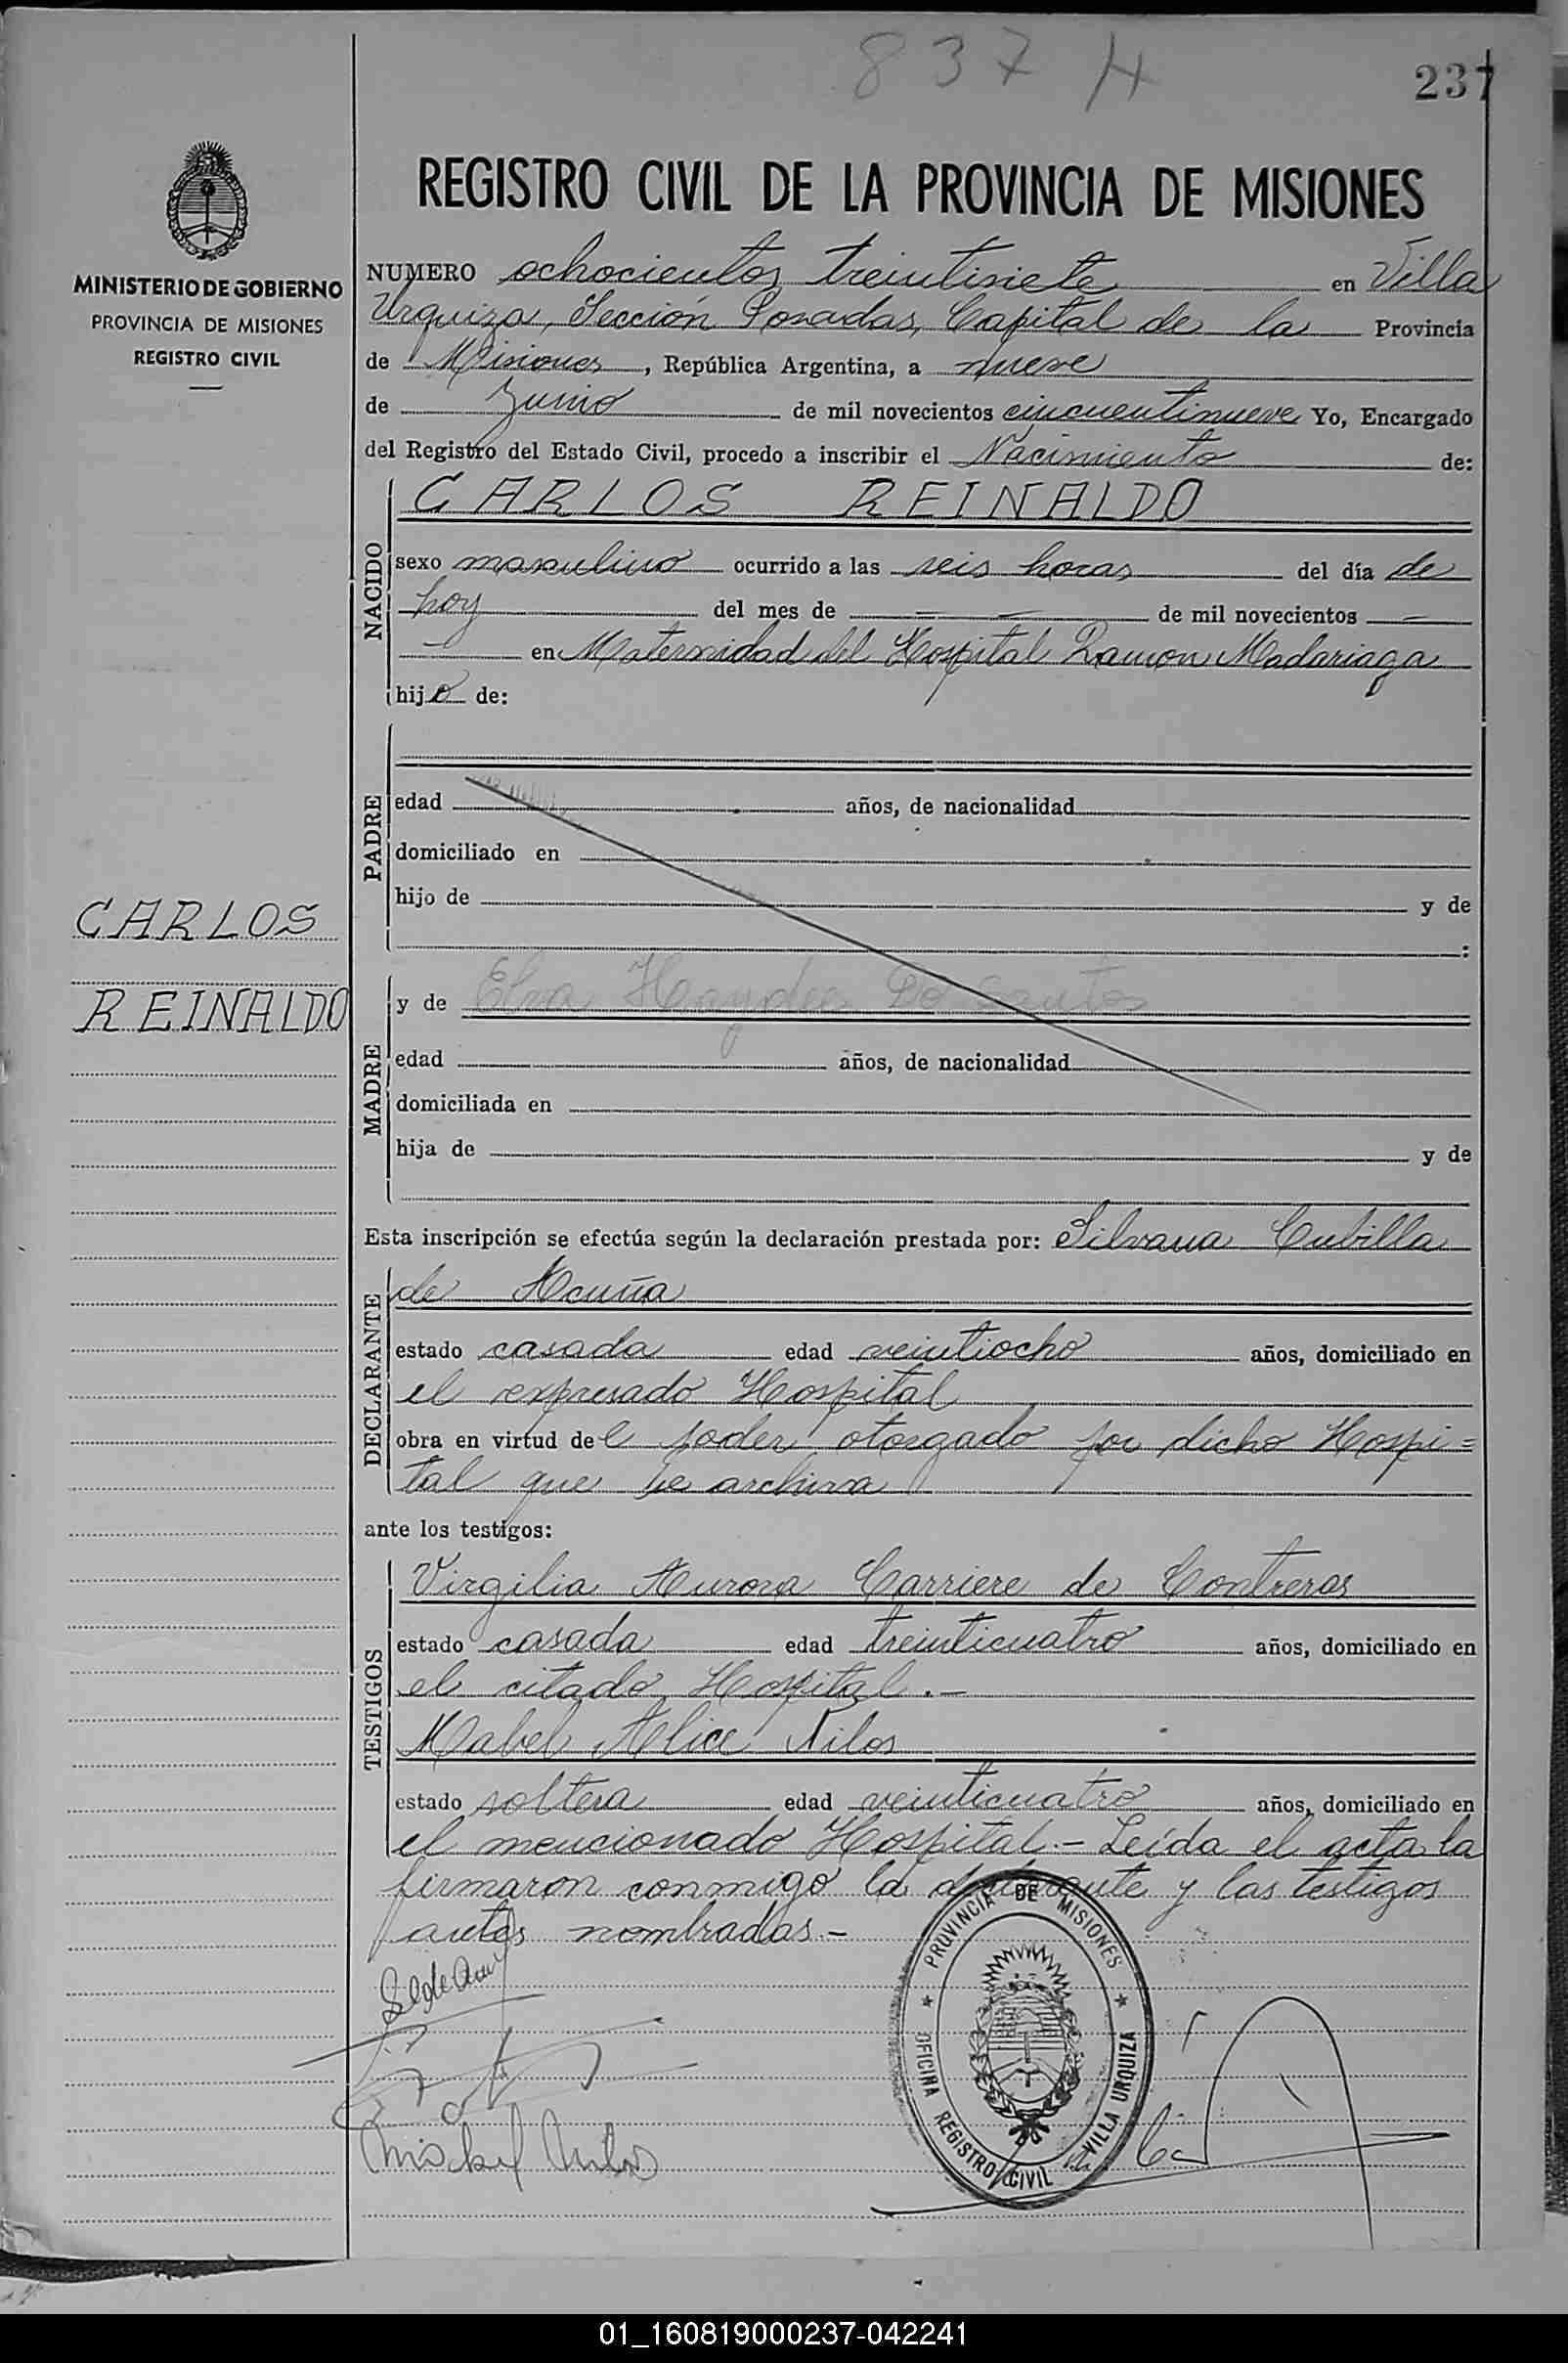 837 H
237
MINISTERIO DE GOBIERNO
PROVINCIA DE MISIONES
REGISTRO CIVIL
REGISTRO CIVIL DE LA PROVINCIA DE MISIONES
NUMERO ochocientos treintisiete en Villa
Urquiza, Sección Posadas, Capital de la Provincia
de Misiones, República Argentina, a nueve
de Junio de mil novecientos cincuentinueve Yo, Encargado
del Registro del Estado Civil, procedo a inscribir el Nacimiento de:
NACIDO
CARLOS REINALDO
sexo masculino ocurrido a las seis horas del día de
hoy del mes de — — de mil novecientos —
— en Maternidad del Hospital Ramon Madariaga
hijo de:
PADRE
edad años, de nacionalidad
domiciliado en
hijo de y de
:
CARLOS
REINALDO
MADRE
y de Elva Haydee Do Santos
edad años, de nacionalidad
domiciliada en
hija de y de
Esta inscripción se efectúa según la declaración prestada por: Silvana Cubilla
DECLARANTE
de Acuña
estado casada edad veintiocho años, domiciliado en
el expresado Hospital
obra en virtud del poder otorgado por dicho Hospi=
tal que se archiva
ante los testigos:
TESTIGOS
Virgilia Aurora Carriere de Contreras
estado casada edad treinticuatro años, domiciliado en
el citado Hospital.—
Mabel Alice Nilos
estado soltera edad veinticuatro años, domiciliado en
el mencionado Hospital.— Leída el acta la
firmaron conmigo la declarante y las testigos
antes nombradas.—
PROVINCIA DE MISIONES
OFICINA REGISTRO CIVIL VILLA URQUIZA
01_160819000237-042241